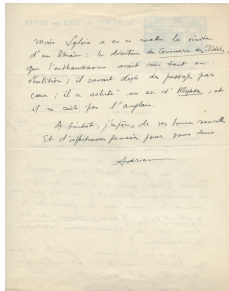 Mais Sylvia a eu ce matin la visite
d'un libraire : le directeur du Commerce des Idées,
que l'enthousiasme avait mis tout en
ébullition ; il savait déjà de passages par
cœur ; il a acheté un ex. d'Ulysses, et
il ne sait pas l'anglais.
A bientôt, j'espère, de vos bonnes nouvelles
Et d'affectueuses pensées pour vous deux
Adrienne